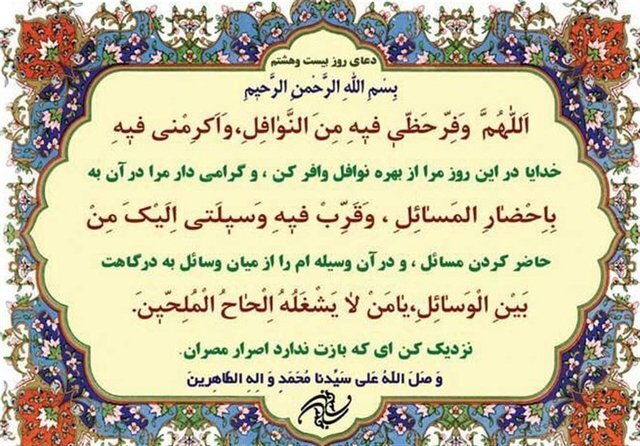 دعای روز بیست وهشتم
بِسْمِ اللهِ الرَّحْمنِ الرَّحیمِ
اَللّٰهُمَّ وَفِّرْ حَظّی فیهِ مِنَ النَّوٰافِلِ،وَاَکرِمْنی فیهِ
خدایا در این روز مرا از بهره نوافل وافر کن ، و گرامی دار مرا در آن به
بِاِحْضٰارِ المَسٰائِلِ ، وَقَرِّبْ فیهِ وَسیٖلَتی اِلَیْکَ مِنْ
حاضر کردن مسائل ، و در آن وسیله ام را از میان وسائل به درگاهت
بَیْنِ الْوَسٰائِلِ،یٰامَنْ لاٰ یَشْغَلُهُ اِلْحٰاحُ الْمُلِحّیٖنَ.
نزدیک کن ای که بازت ندارد اصرار مصران.
وَ صَلَ اللهُ عَلی سَیِّدنا مُحَمَدِ وَ الِهِ الطّاهِرینَ